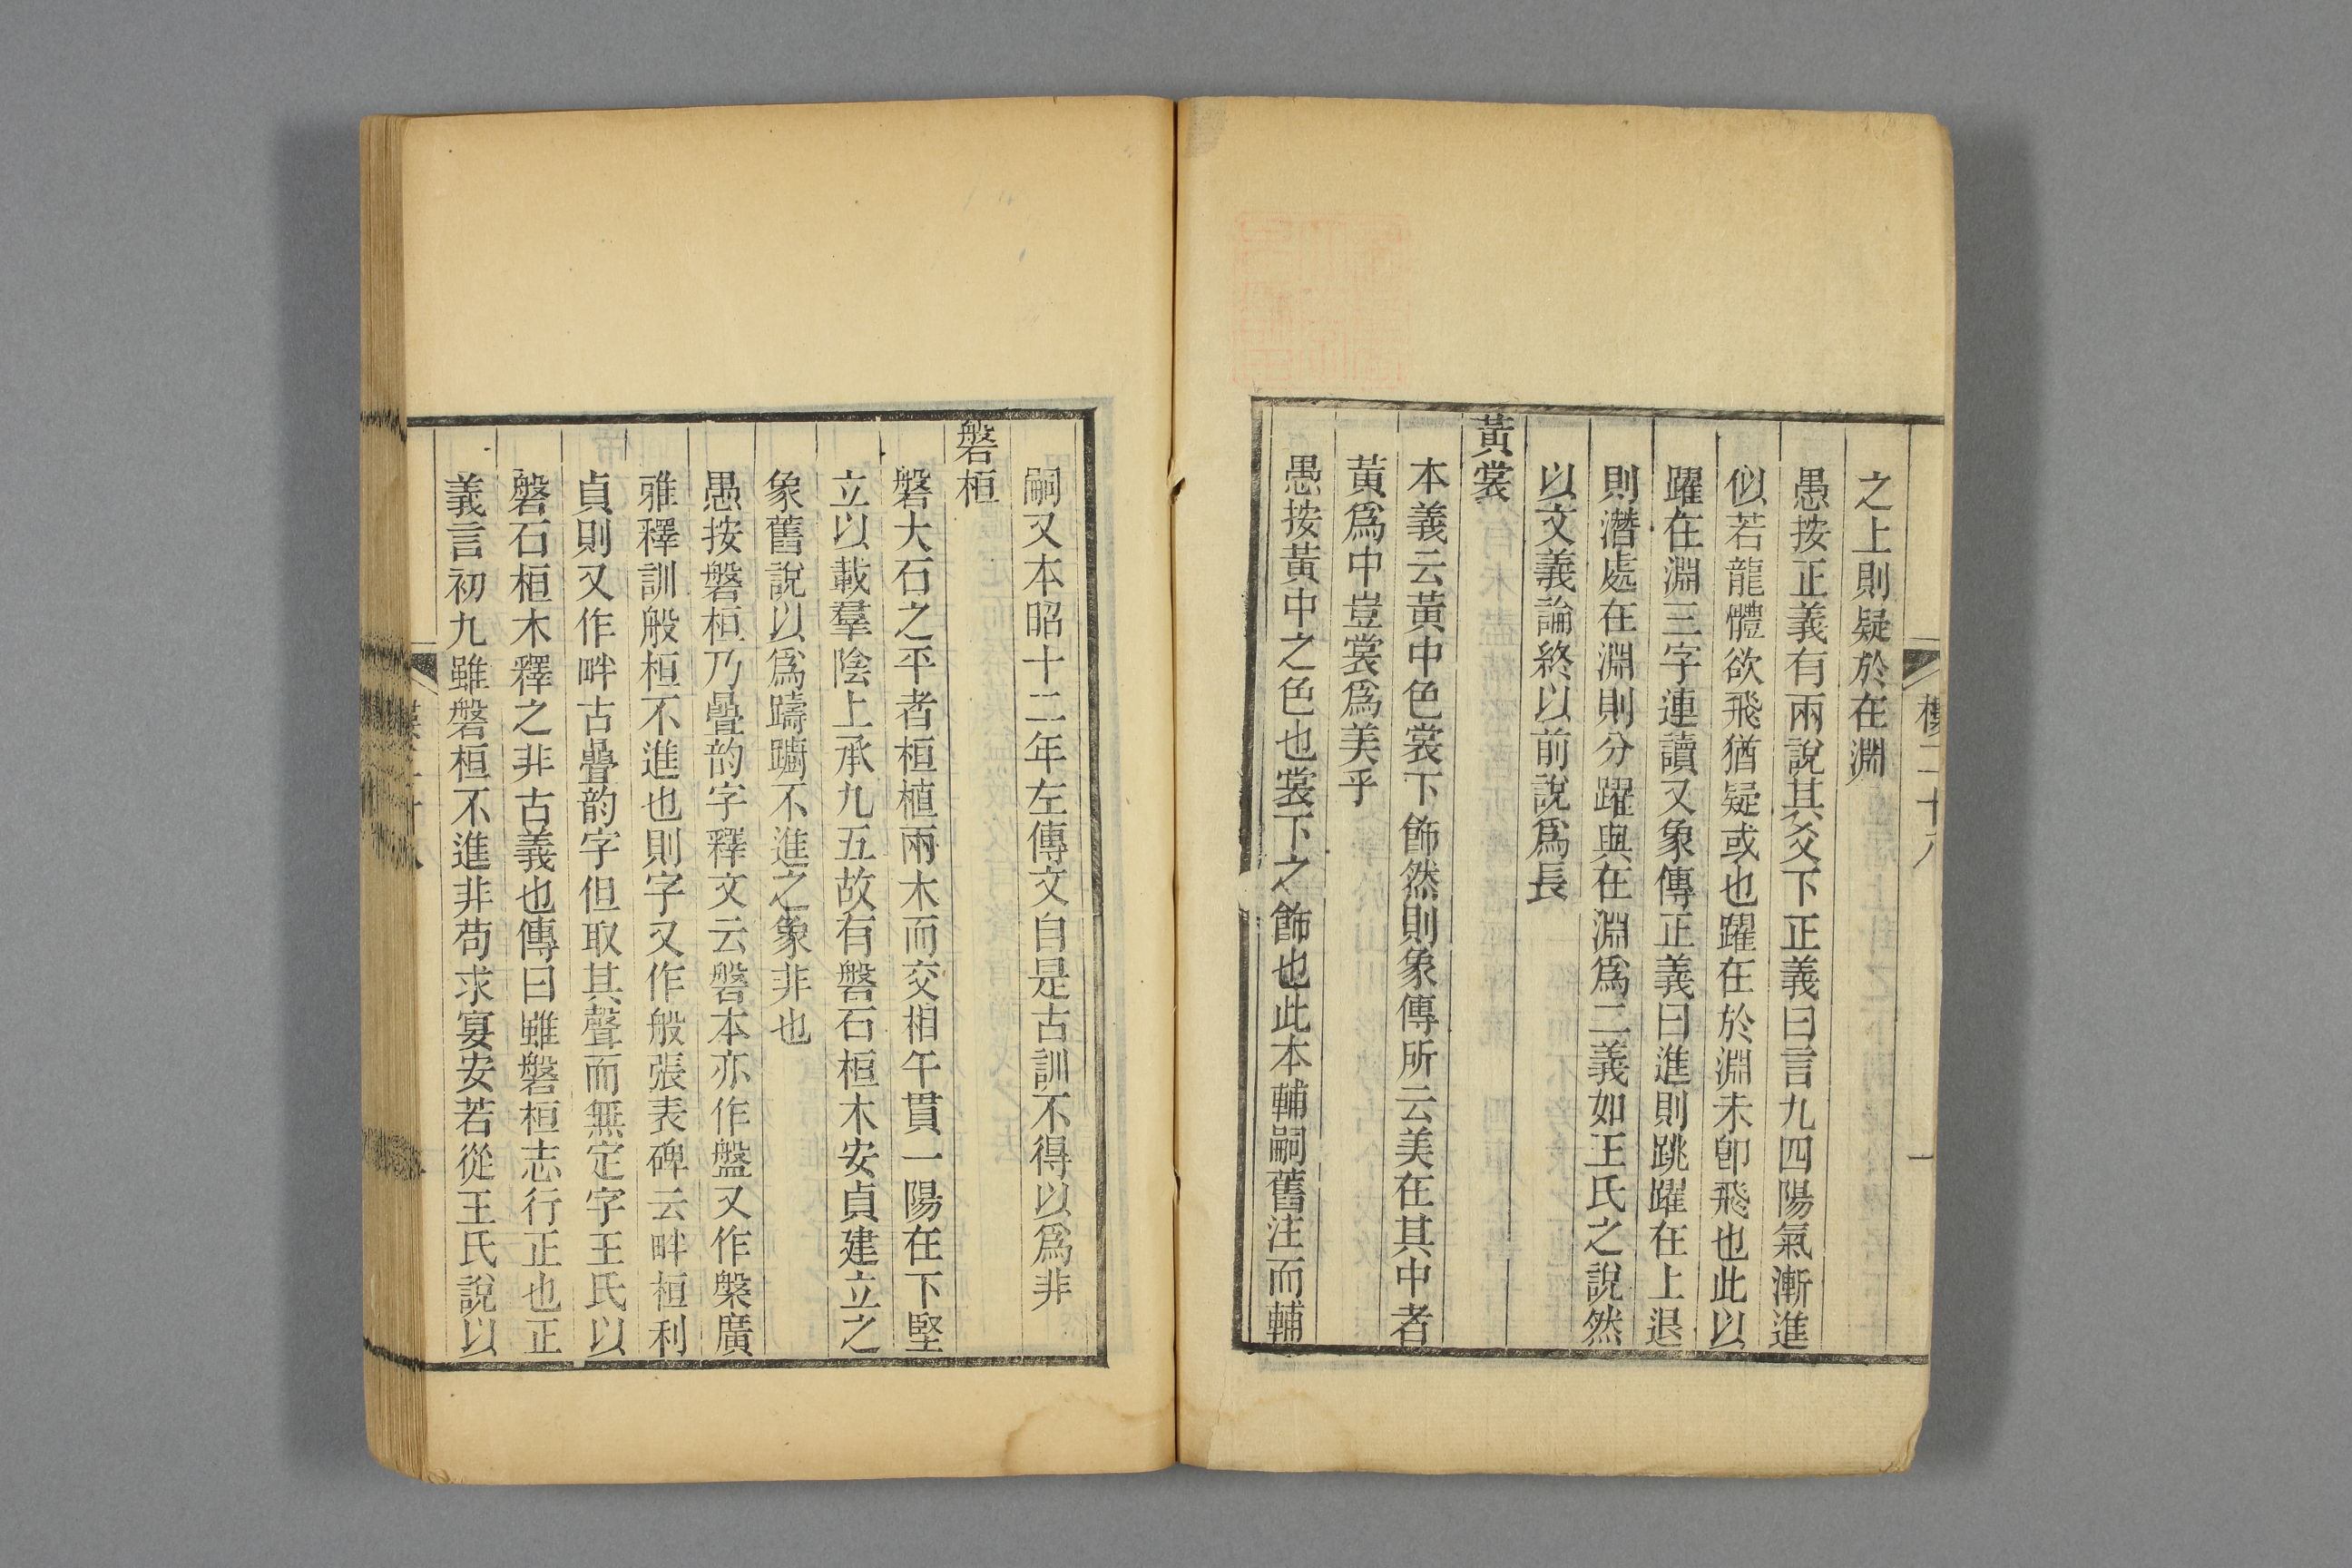 之上則疑於在淵
愚按正義有兩說其爻下正義曰言九四陽氣漸進
似若龍體欲飛猶疑或也躍在於淵未卽飛也此以
躍在淵三字連讀又象傳正義曰進則跳躍在上退
則潛處在淵則分躍與在淵爲二義如王氏之說然
以文義論終以前說爲長
黃裳
本義云黃中色裳下飾然則象傳所云美在其中者
黃爲中豈裳爲美乎
愚按黃中之色也裳下之飾也此本輔嗣舊注而輔
嗣又本昭十二年左傳文自是古訓不得以爲非
磐桓
磐大石之平者桓植兩木而交相午貫一陽在下堅
立以載羣陰上承九五故有磐石桓木安貞建立之
象舊說以爲躊躇不進之象非也
愚按磐桓乃疊韵字釋文云磐本亦作盤又作槃廣
雅釋訓般桓不進也則字又作般張表碑云畔桓利
貞則又作畔古疊韵字但取其聲而無定字王氏以
磐石桓木釋之非古義也傳曰雖磐桓志行正也正
義言初九雖磐桓不進非苟求宴安若從王氏說以